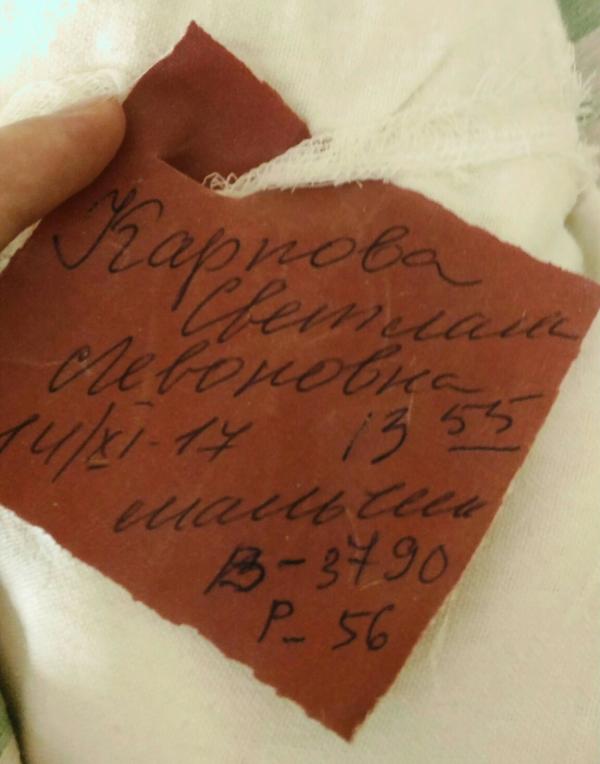 Карпова
Светлана
Левоновна
14/XI-17 13 55
мальчик
В-3790
Р-56